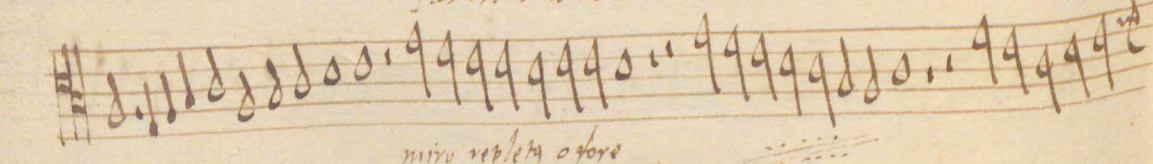 miro repleta odore